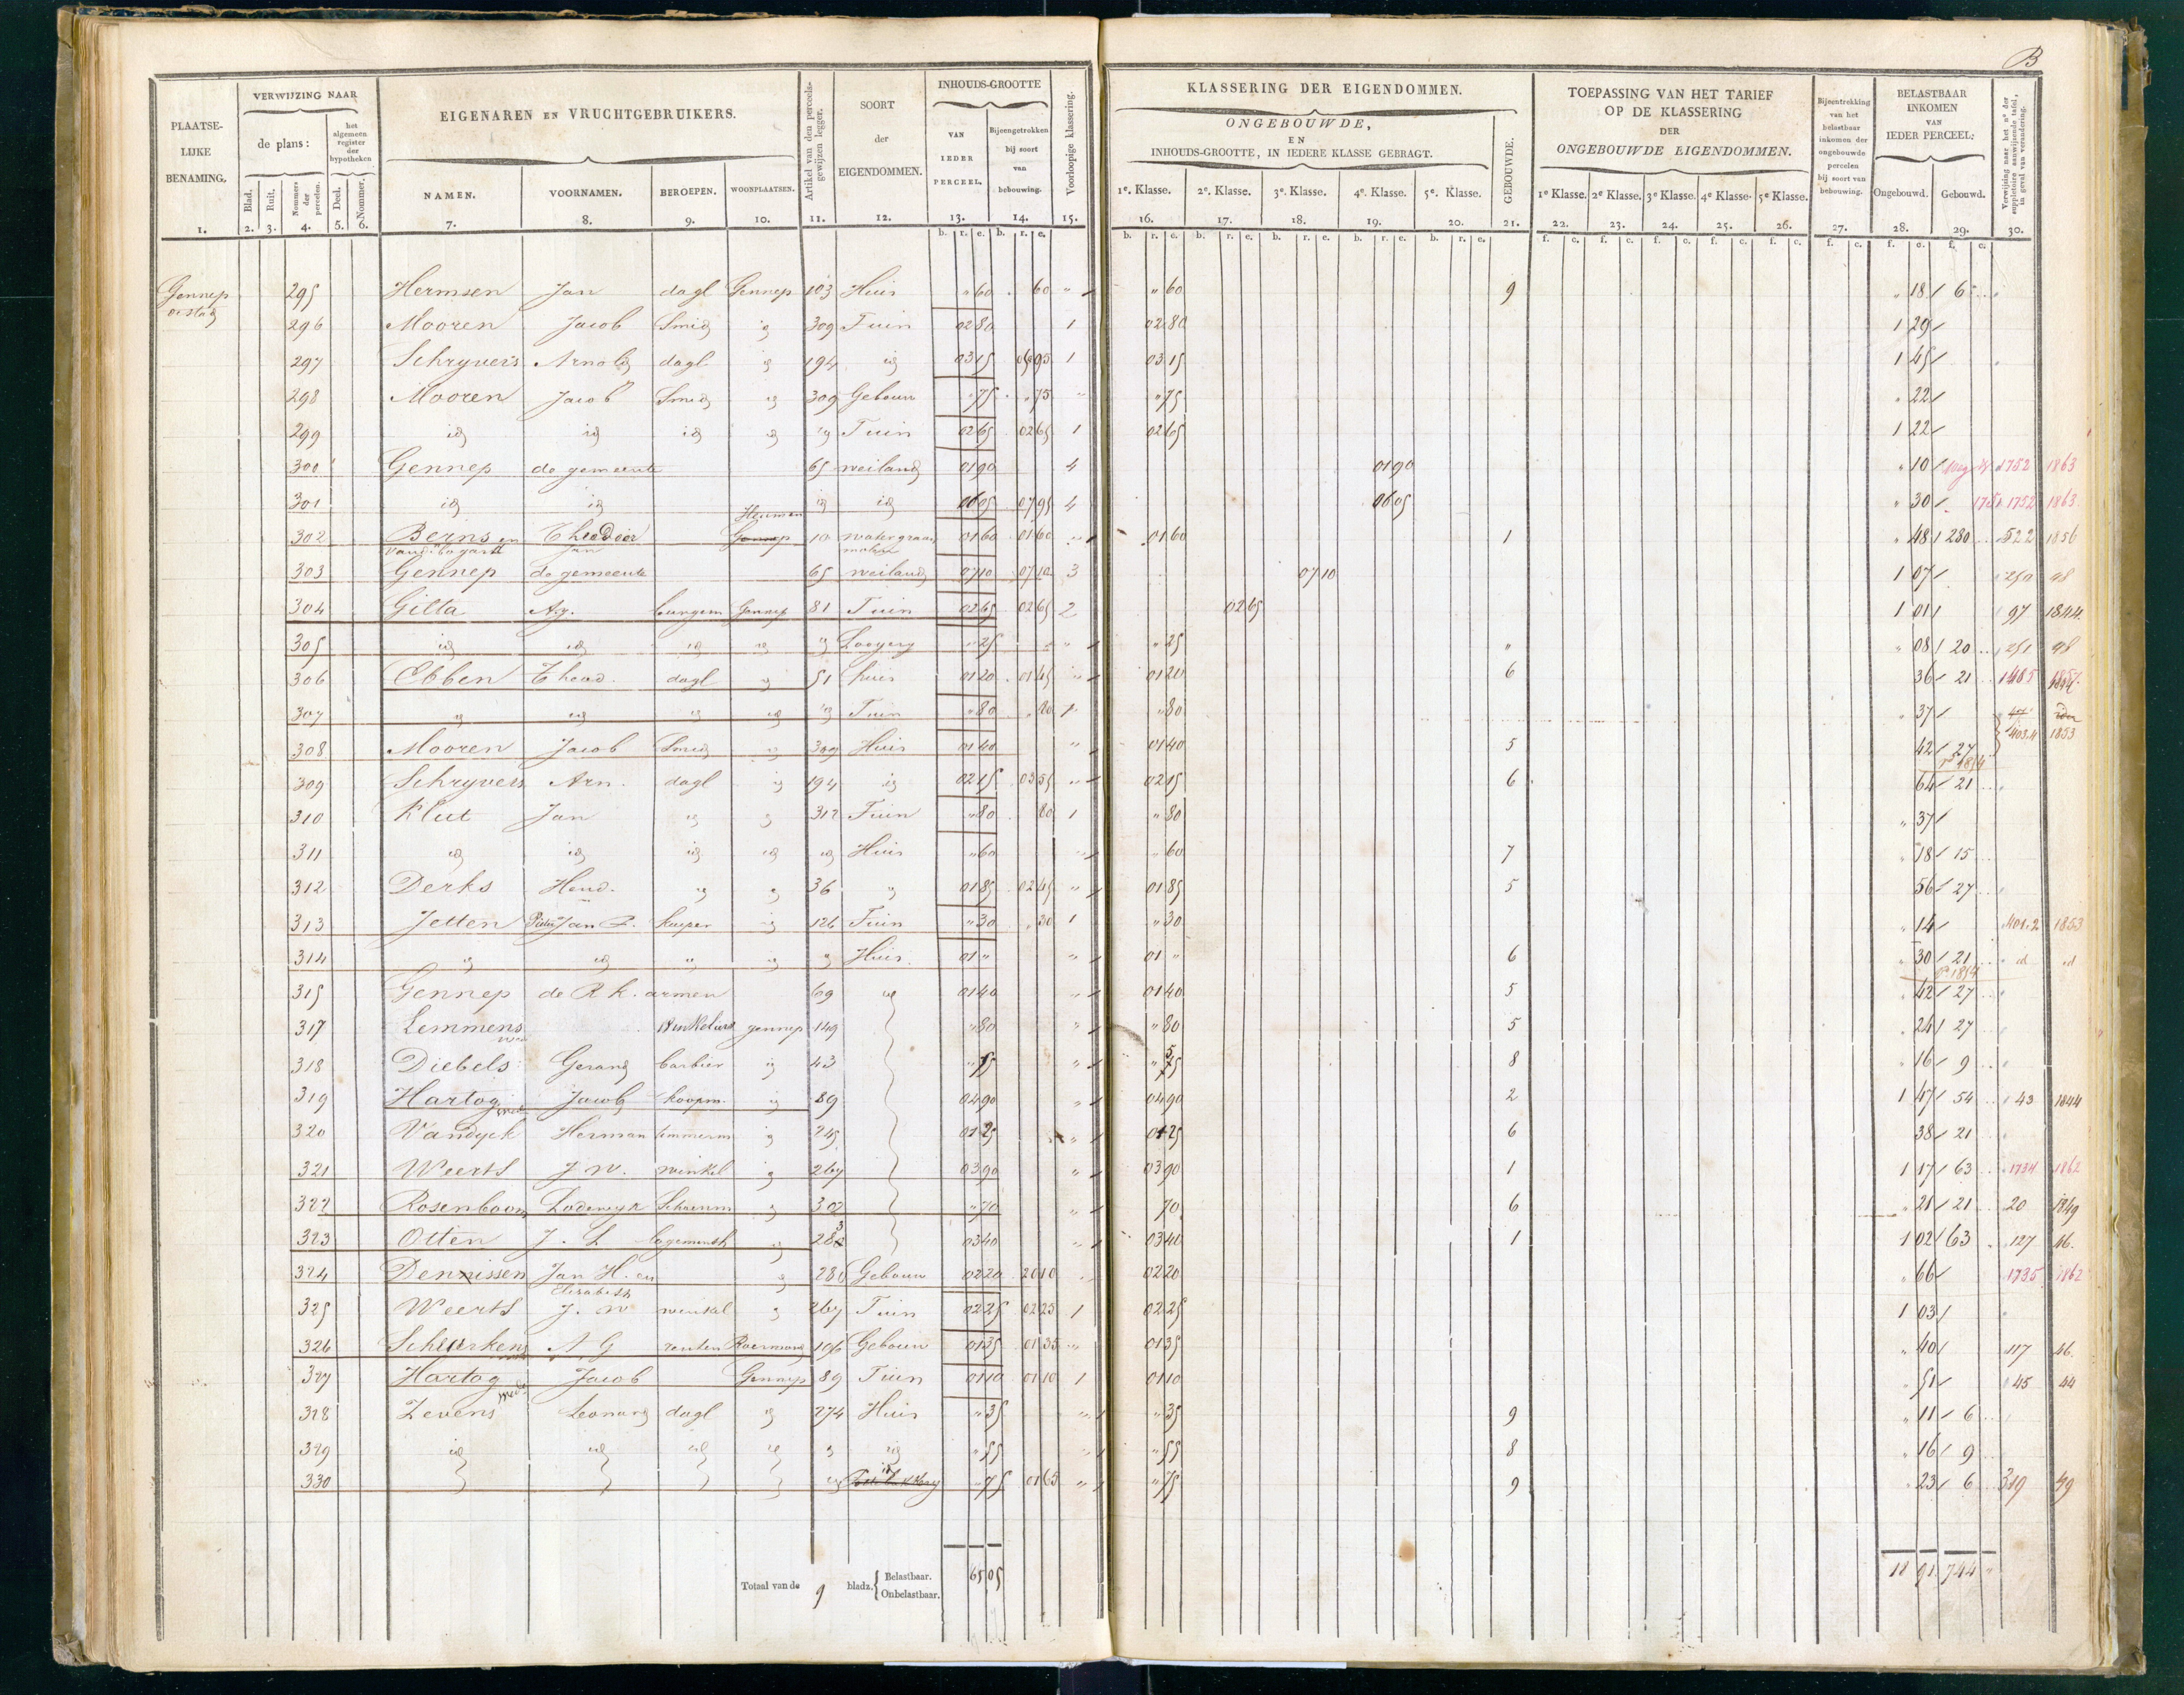 B
PLAATSE-
LIJKE
BENAMING.
VERWIJZING NAAR
de plans:
het algemeen register der hypotheken
Blad. Ruit. Nommers der perceelen. Deel. Nommer.
EIGENAREN EN VRUCHTGEBRUIKERS.
NAMEN. VOORNAMEN. BEROEPEN. WOONPLAATSEN.
Artikel van den perceels-gewijzen legger.
SOORT
der
EIGENDOMMEN.
INHOUDS-GROOTTE
VAN IEDER PERCEEL.
Bijeengetrokken bij soort van bebouwing.
Voorloopige klassering.
KLASSERING DER EIGENDOMMEN.
ONGEBOUWDE,
EN
INHOUDS-GROOTTE, IN IEDERE KLASSE GEBRAGT.
1e. Klasse. 2e. Klasse. 3e. Klasse. 4e. Klasse. 5e. Klasse.
GEBOUWDE.
TOEPASSING VAN HET TARIEF
OP DE KLASSERING
DER
ONGEBOUWDE EIGENDOMMEN.
1e Klasse. 2e Klasse. 3e Klasse. 4e Klasse. 5e Klasse.
Bijeentrekking van het belastbaar inkomen der ongebouwde percelen bij soort van bebouwing.
BELASTBAAR
INKOMEN
VAN
IEDER PERCEEL:
Ongebouwd. Gebouwd.
Verwijzing naar het no. der suppletoire aanwijzende tafel, in geval van verandering.
1. 2. 3. 4. 5. 6. 7. 8. 9. 10. 11. 12. 13. 14. 15. 16. 17. 18. 19. 20. 21. 22. 23. 24. 25. 26. 27. 28. 29. 30.
Gennep 295 Hermsen Jan dagl Gennep 103 Huis " 60 . 60 " " 60 9 " 18 6
296 Mooren Jacob Smid id 309 Tuin 02 80 1 02 80 1 29
297 Schryvers Arnold dagl id 194 id 03 15 1 03 15 1 45
298 Mooren Jacob Smid id 309 Gebouw " 75 " 75 " " 75 " 22
299 id id id id id Tuin 02 65 02 65 1 02 65 1 22
300 Gennep de gemeente 65 weiland 01 90 4 01 90 " 10 1752 1863
301 id id id id 06 05 07 95 4 06 05 " 30 1752 1863
Heumen
302 Beins en Theodoor Gennep 10 01 60 01 60 " 01 60 1 " 48 230 522 1856
Vanden Bogart Jan molen
303 Gennep de gemeente 65 weiland 07 10 07 10 3 07 10 1 07 250 48
304 Gitta burgem Gennep 81 Tuin 02 65 02 65 2 02 65 1 01 97 1844
305 id id id id id Looyery " 25 " " 25 " " 08 20 251 48
306 Ebben Theod. dagl id 51 huis 01 20 01 45 " 01 20 6 36 21 1485
307 id id id id id Tuin " 80 " 80 1 " 80 " 37
308 Mooren Jacob Smid id 309 Huis 01 40 " 01 40 5 42 27 1853
309 Schryvers Arn. dagl id 194 id 02 15 03 55 " 02 15 6 64 21
310 Klut Jan id id 312 Tuin " 80 80 1 " 80 " 37
311 id id id id id Huis " 60 " " 60 7 " 18 15
312 Derks Hend. id id 36 id 01 85 02 45 " 01 85 5 56 27
313 Jetten Pieter Jan kuyper id 126 Tuin " 30 " 30 1 " 30 " 14 1853
314 id id id id id Huis 01 " " 01 " 6 " 30 21 id id
315 Gennep de R k. armen 69 id 01 40 " 01 40 5 " 42 27
317 Lemmens gennep 149 " 80 " " 80 5 " 24 27
318 Diebels Gerard barbier id 43 8 " 16 9
319 Hartog Jacob koopm. id 89 04 90 " 04 90 2 1 47 54 43 1844
320 Vandyck Herman timmerm id 245 01 25 " 01 25 6 38 21
321 Weerts J. W. winkel id 267 03 90 " 03 90 1 1 17 63 1734 1862
322 Rosenboom Lodewyk Schoenm id 302 " 70 " 70 6 " 21 21 20 1849
323 Otten J. L logementh id 03 40 " 03 40 1 1 02 63 127 46.
324 Dennissen Jan H. en id Gebouw 02 20 20 10 02 20 " 66 1735 1862
Elisabeth
325 Weerts J. W winkel id 267 Tuin 02 25 02 25 1 02 25 1 03
326 A G renten Roermond 106 Gebouw 01 35 01 35 " 01 35 " 40 117 46.
327 Hartog Jacob Gennep 89 Tuin 01 10 01 10 1 01 10 " 51 45 44
328 Zevens Leonard dagl id 274 Huis " 35 " " 35 9 " 11 6
329 id id id id id id " 55 " " 55 8 " 16 9
330 id id " 75 01 65 " " 75 9 " 23 6 319 49
Totaal van de 9 bladz. { Belastbaar. 65 05 18 91 744 "
Onbelastbaar.